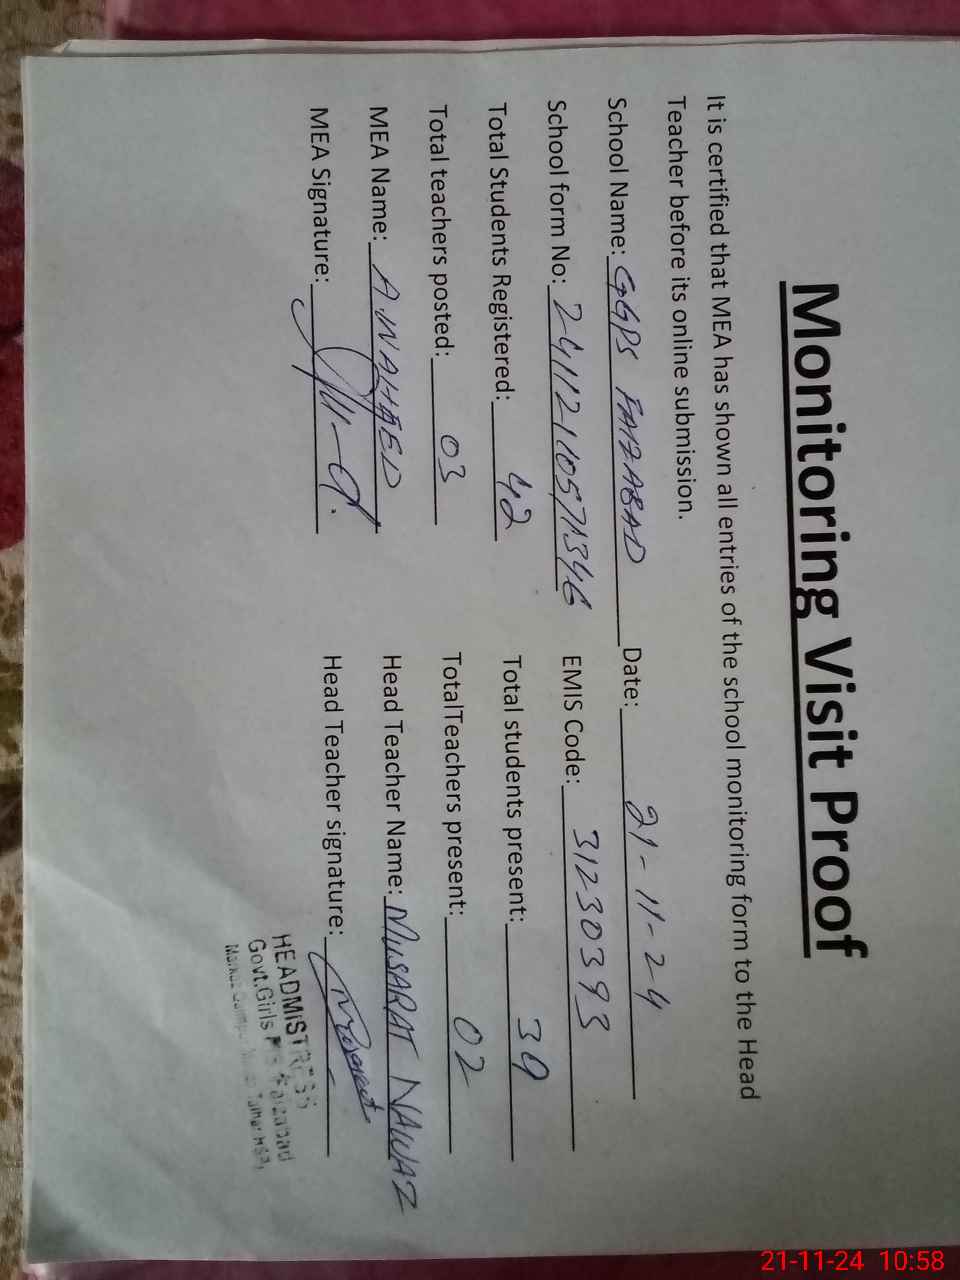 Monitoring Visit Proof
It is certified that MEA has shown all entries of the school monitoring form to the Head
Teacher before its online submission.
School Name: GGPS FAIZABAD Date: 21-11-24
School form No: 24112110571346 EMIS Code: 31230393
Total Students Registered: 42 Total students present: 39
Total teachers posted: 03 TotalTeachers present: 02
MEA Name: A. WAHEED Head Teacher Name: MUSARAT NAWAZ
MEA Signature: Head Teacher signature: Musarat
HEADMISTRESS
Govt.Girls P/S Faizabad
Markaz
21-11-24 10:58